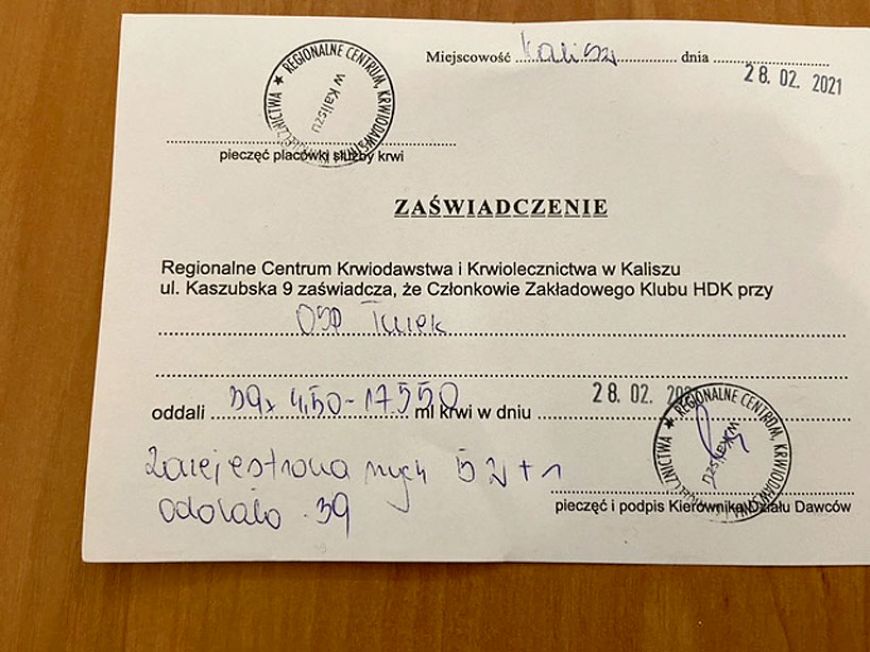 Miejscowość Kalisz dnia 28. 02. 2021
REGIONALNE CENTRUM KRWIODAWSTWA
w Kaliszu
pieczęć placówki służby krwi
ZAŚWIADCZENIE
Regionalne Centrum Krwiodawstwa i Krwiolecznictwa w Kaliszu
ul. Kaszubska 9 zaświadcza, że Członkowie Zakładowego Klubu HDK przy
OSP Turek
oddali 39x 450-17.550 ml krwi w dniu 28. 02.
REGIONALNE CENTRUM
w Kaliszu
Zarejestrowanych 52+1
pieczęć i podpis Kierownika Działu Dawców
oddało 39